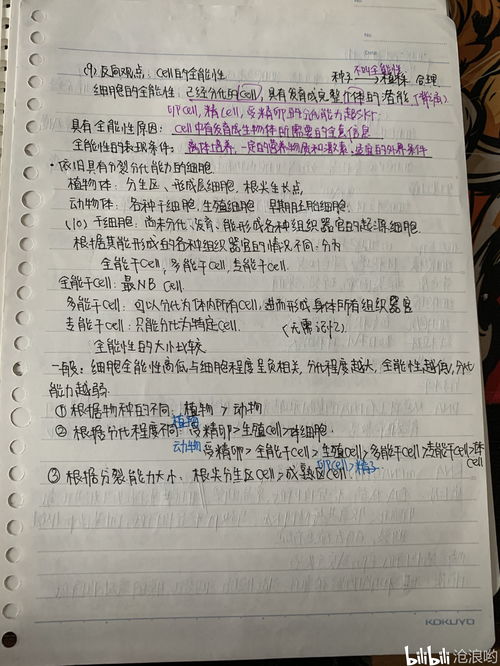 (9) 反向观点:cell的全能性 种子不叫全能性→植株 合理
细胞的全能性:已经分化的cell,具有发育成完整个体的潜能
卵cell,精cell,受精卵的分化能力
具有全能性原因:cell中有发育成生物体所需要的全套信息
全能性的表现条件:离体培养、一定的营养物质和激素、适宜的外界条件
·依旧具有分裂分化能力的细胞
植物体:分生区、形成层细胞,根尖生长点
动物体:各种干细胞,生殖细胞,早期胚胎细胞
(10) 干细胞:尚未分化、发育、能形成各种组织器官的起源细胞.
根据其能形成的各种组织器官的情况不同:分为
全能干cell,多能干cell,专能干cell.
全能干cell:最NB cell.
多能干cell:可以分化为体内所有cell,进而形成身体所有组织器官
专能干cell:只能分化为特定cell. (无需记忆)
全能性的大小比较
一般:细胞全能性高低与细胞程度呈负相关,分化程度越大,全能性越低,分化
能力越弱.
①根据物种的不同:植物>动物
②根据分化程度不同 植物 受精卵>生殖cell>体细胞.
动物 受精卵>全能干cell>生殖cell>多能干cell>专能干cell>体cell
卵cell>精子
③根据分裂能力大小:根尖分生区cell>成熟区cell
KOKUYO
bilibili 沧浪哟